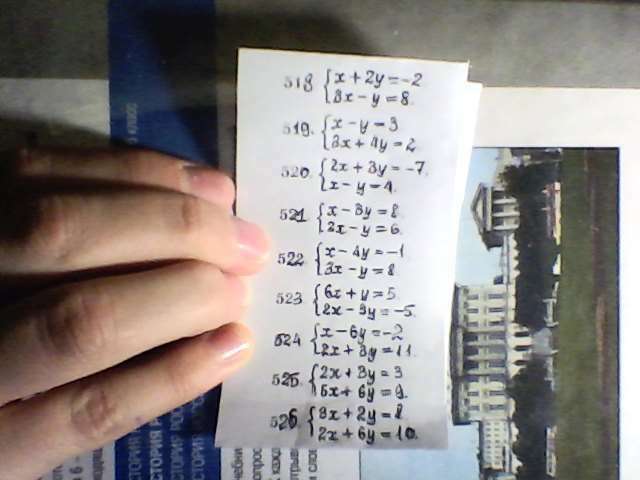 518 { x + 2y = -2
3x - y = 8.
519. { x - y = 3
3x + 4y = 2
520. { 2x + 3y = -7.
x - y = 4.
521 { x - 3y = 8.
2x - y = 6.
522 { x - 4y = -1
3x - y = 8
523 { 6x + y = 5.
2x - 3y = -5.
524 { x - 6y = -2
2x + 3y = 11.
525. { 2x + 3y = 3
5x + 6y = 9.
526 { 3x + 2y = 8
2x + 6y = 10.
ИСТОРИЯ РОС